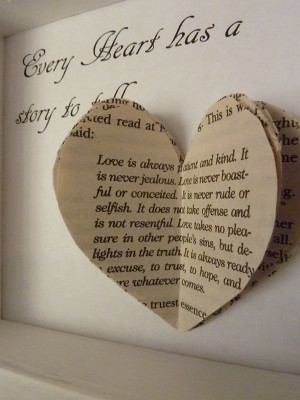 Every Heart has a
story to tell
ted read at
said:
s. This is
Love is always patient and kind. It
is never jealous. Love is never boast-
ful or conceited. It is never rude or
selfish. It does not take offense and
is not resentful. Love takes no plea-
sure in other people's sins, but de-
lights in the truth. It is always ready
excuse, to trust, to hope, and
whatever comes.
truest essence